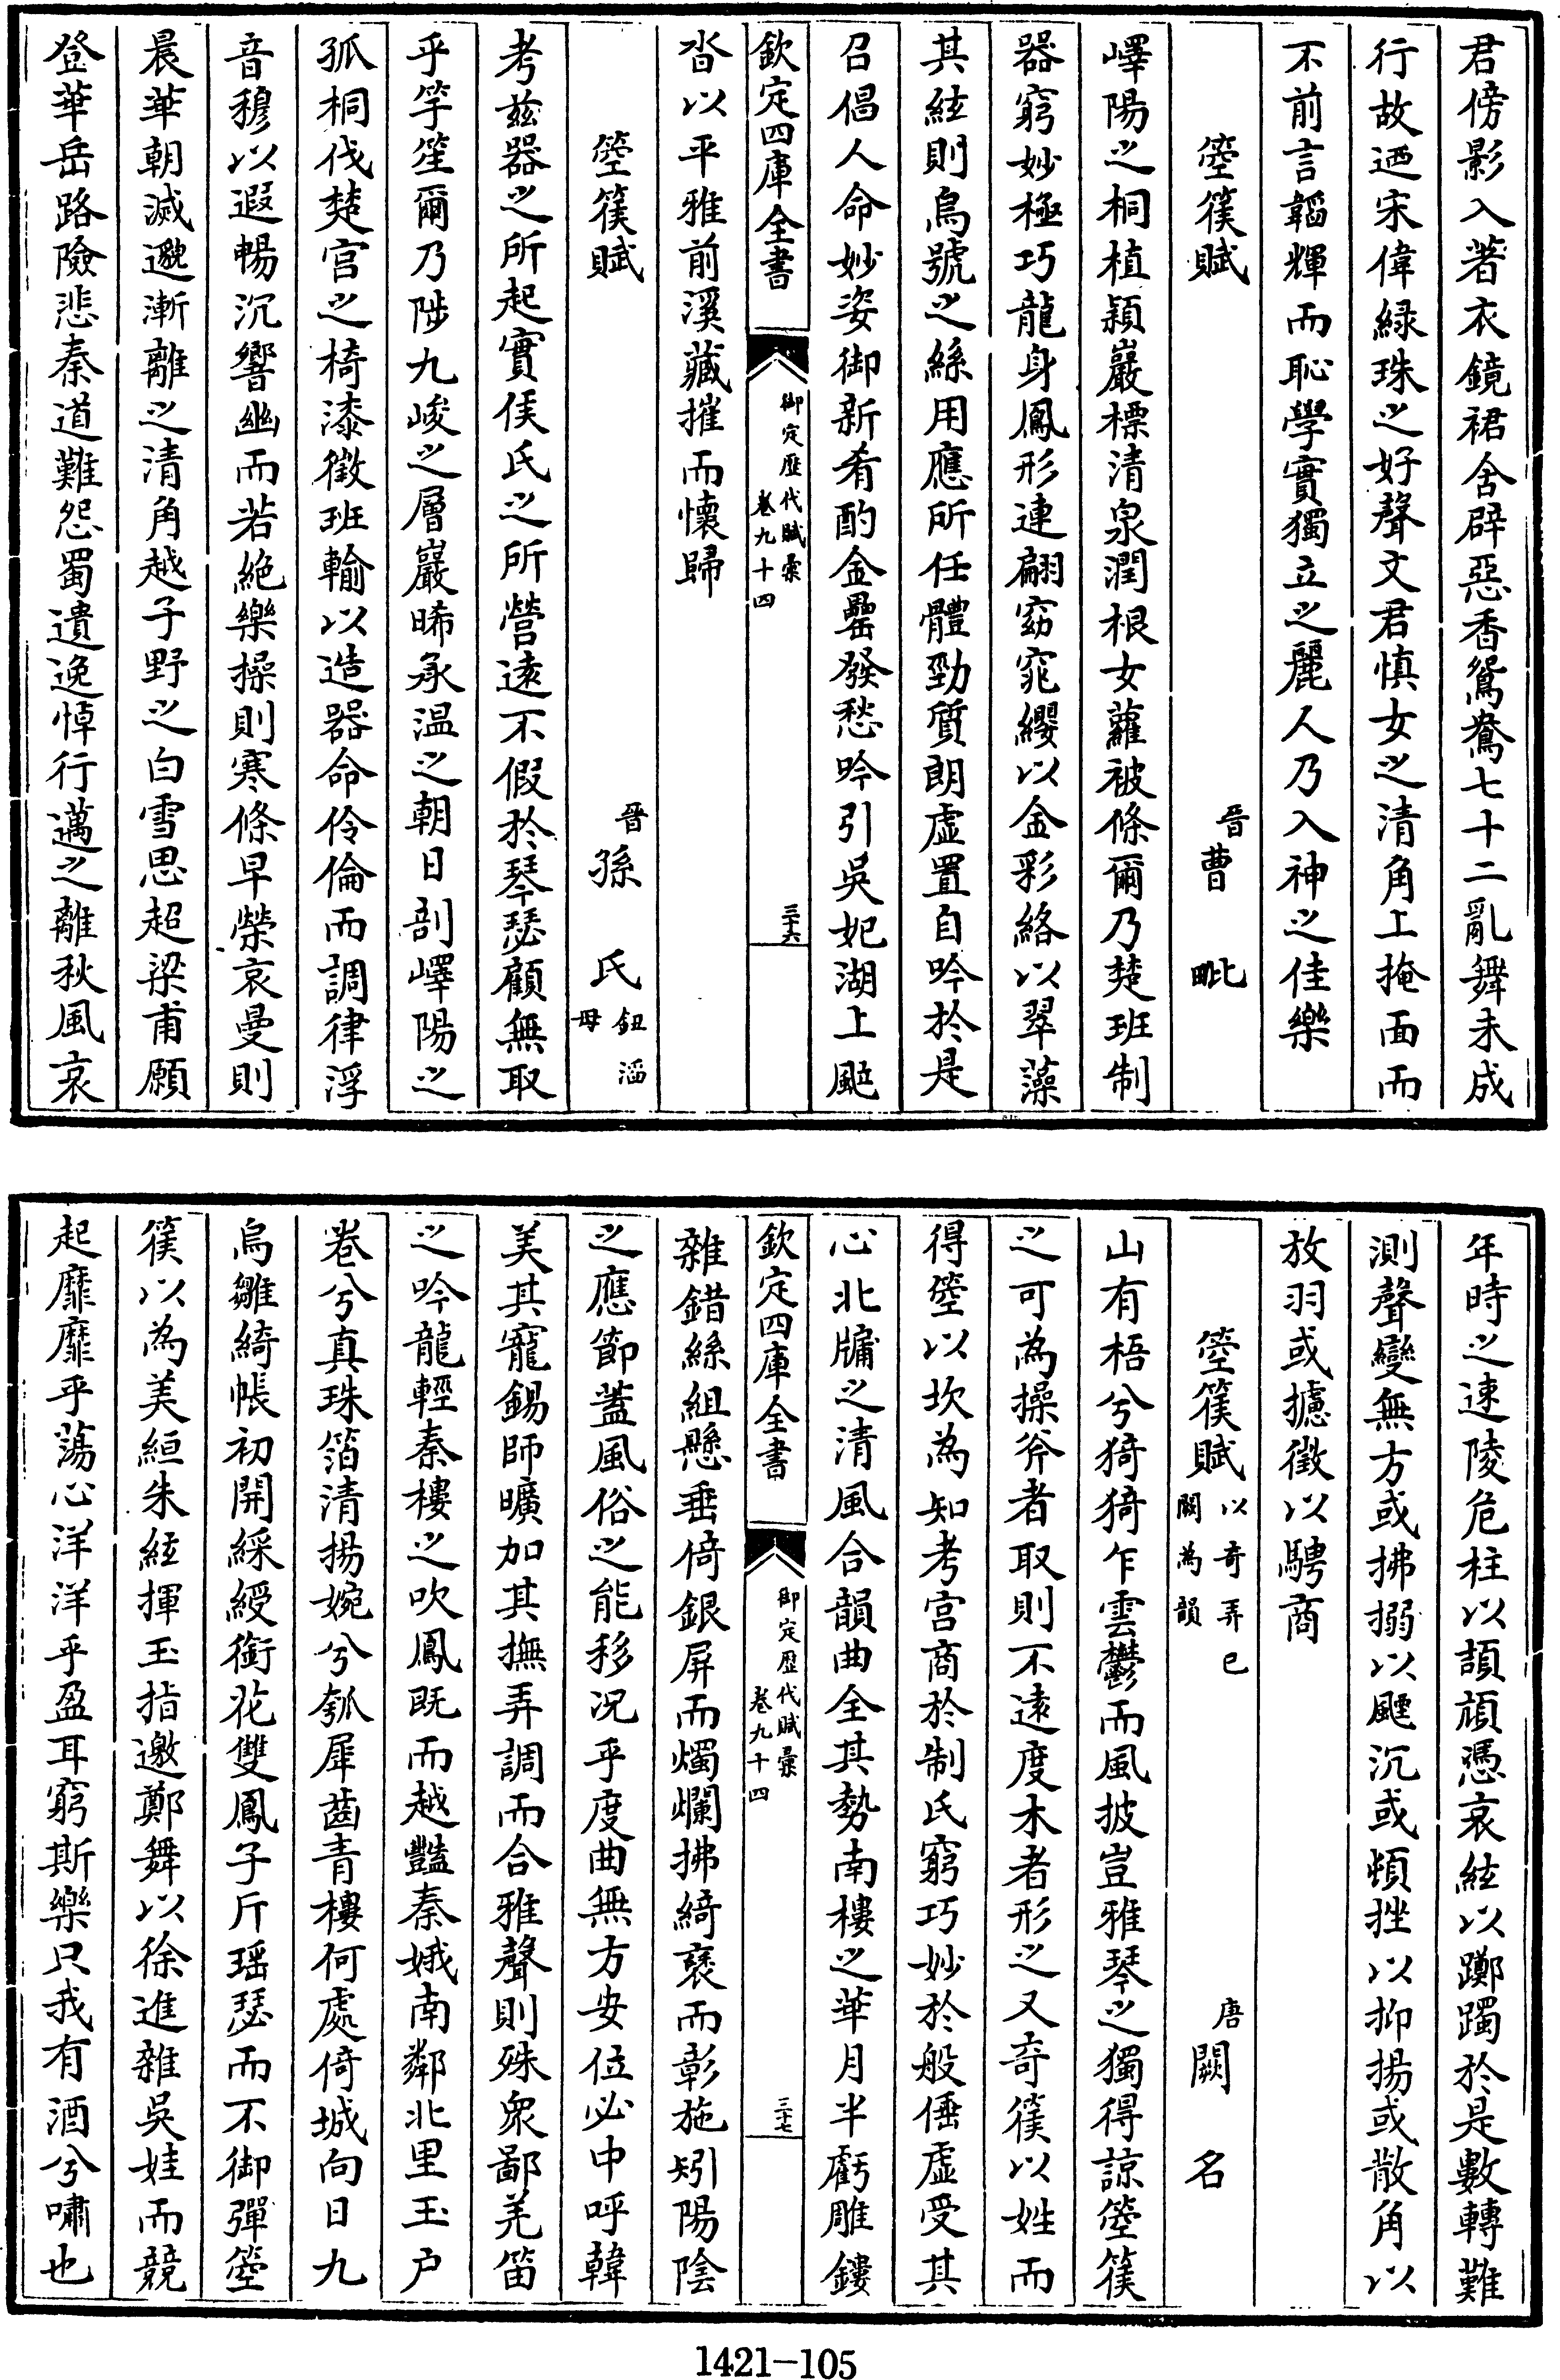 君傍影入著衣鏡裙舍辟惡香鴛鴦七十二亂舞未成
行故迺宋偉緑珠之好聲文君慎女之清角工掩面而
不前言韜輝而恥學實獨立之麗人乃入神之佳樂
箜篌賦 晉曹毗
嶧陽之桐植潁巖標清泉潤根女蘿被條爾乃楚班制
器窮妙極巧龍身鳳形連翩窈窕纓以金彩絡以翠藻
其絃則烏號之絲用應所任體勁質朗虚置自吟於是
召倡人命妙姿御新肴酌金罍發愁吟引吳妃湖上颭
欽定四庫全書 御定歷代賦彙 卷九十四 三十六
沓以平雅前溪藏摧而懷歸
箜篌賦 晉孫氏 鈕滔母
考茲器之所起實侯氏之所營遠不假於琴瑟顧無取
乎竽笙爾乃陟九峻之層巖晞承温之朝日剖嶧陽之
孤桐伐楚宫之椅漆徵班輸以造器命伶倫而調律浮
音穆以遐暢沉響幽而若絶樂操則寒條早榮哀曼則
晨華朝滅邈漸離之清角越子野之白雪思超梁甫願
登華岳路險悲秦道難怨蜀遺逸悼行邁之離秋風哀
年時之速陵危柱以頡頏憑哀絃以躑躅於是數轉難
測聲變無方或拂搦以飃沉或頓挫以抑揚或散角以
放羽或攄徵以騁商
箜篌賦 以奇弄已闋為韻 唐闕名
山有梧兮猗猗乍雲鬱而風披豈雅琴之獨得諒箜篌
之可為操斧者取則不遠度木者形之又奇篌以姓而
得箜以坎為知考宫商於制氏窮巧妙於般倕虚受其
心北牖之清風合韻曲全其勢南樓之華月半虧雕鏤
欽定四庫全書 御定歷代賦彙 卷九十四 三十七
雜錯絲組懸垂倚銀屏而燭爛拂綺褎而彰施矧陽陰
之應節蓋風俗之能移况乎度曲無方安位必中呼韓
美其寵錫師曠加其撫弄調而合雅聲則殊衆鄙羌笛
之吟龍輕秦樓之吹鳳既而越豔秦娥南鄰北里玉户
卷兮真珠箔清揚婉兮瓠犀齒青樓何處倚城向日九
烏雛綺帳初開綵綬銜花雙鳳子斤瑶瑟而不御彈箜
篌以為美絙朱絃揮玉指邀鄭舞以徐進雜吳娃而競
起靡靡乎蕩心洋洋乎盈耳窮斯樂只我有酒兮嘯也
1421-105